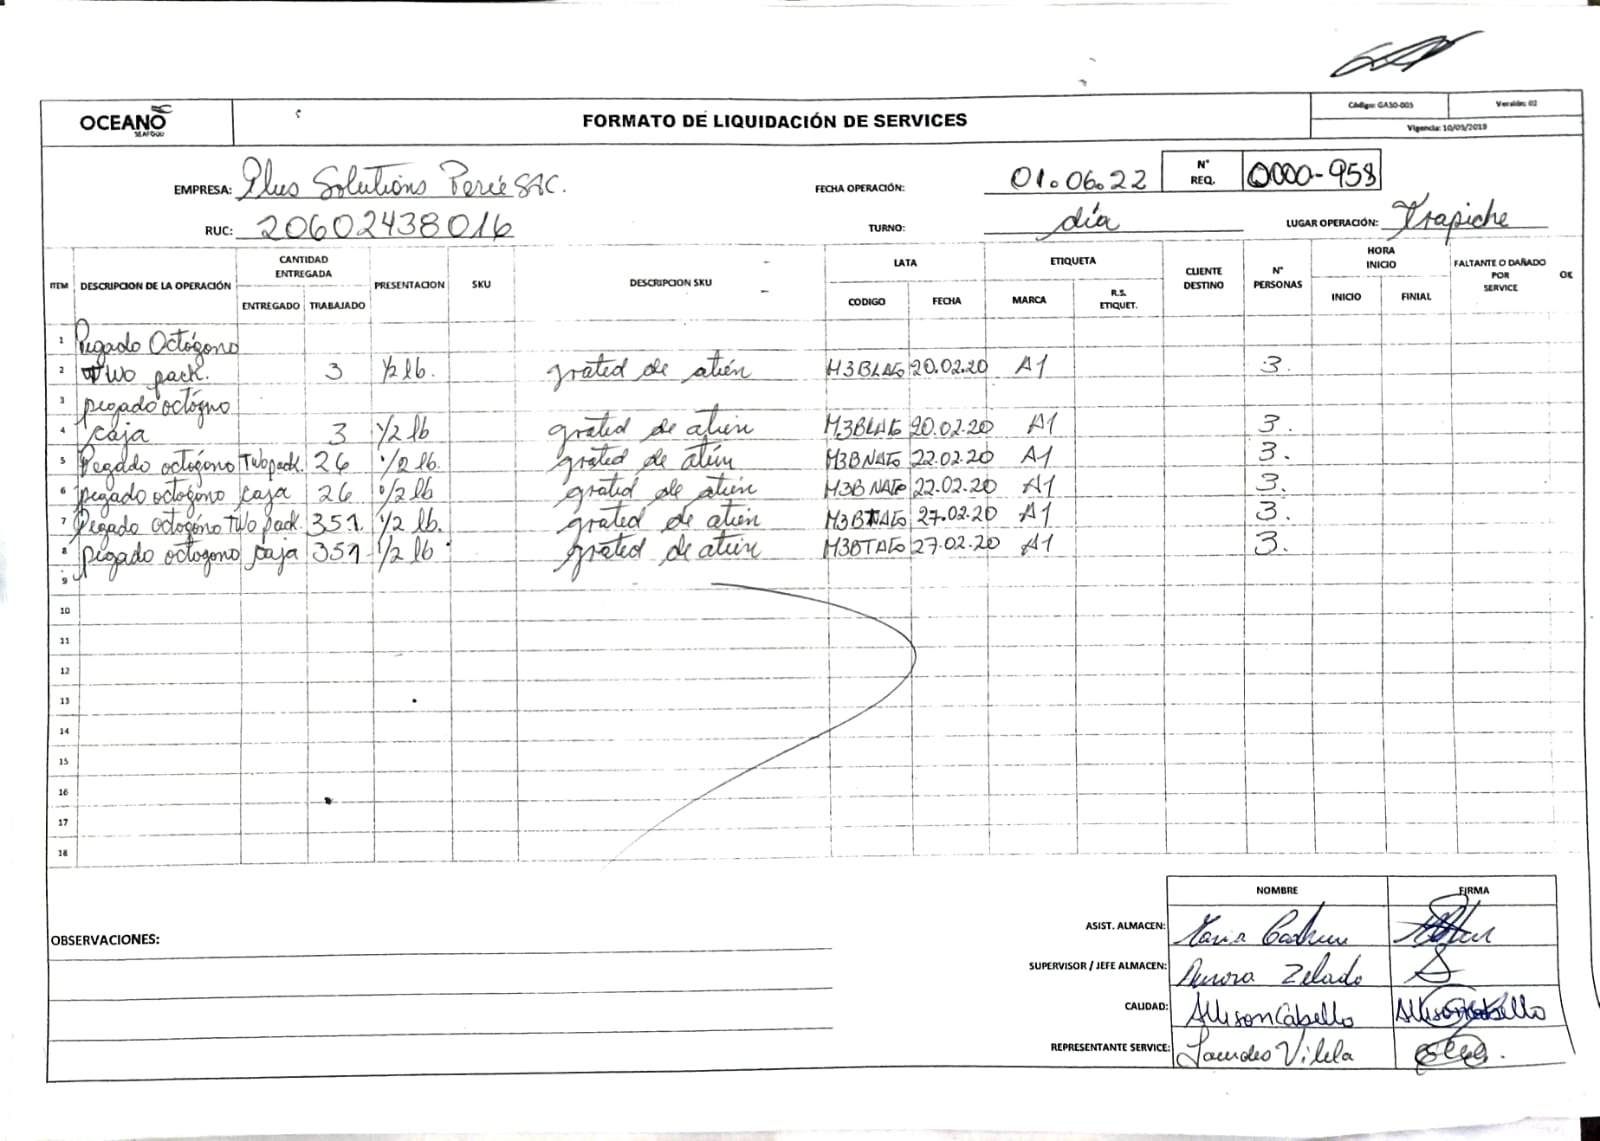 OCEANO
SEAFOOD
FORMATO DE LIQUIDACIÓN DE SERVICES
Código: GASO-005
Versión: 02
Vigencia: 10/09/2019
EMPRESA: Plus Solutions Perú SAC.
FECHA OPERACIÓN: 01.06.22
N° REQ. 0000-958
RUC: 20602438016
TURNO: día
LUGAR OPERACIÓN: Trapiche
ITEM DESCRIPCION DE LA OPERACIÓN CANTIDAD ENTREGADA PRESENTACION SKU DESCRIPCION SKU LATA ETIQUETA CLIENTE DESTINO N° PERSONAS HORA INICIO FALTANTE O DAÑADO POR SERVICE OK
ENTREGADO TRABAJADO CODIGO FECHA MARCA R.S. ETIQUET. INICIO FINIAL
1 Pegado Octógono
2 Two pack. 3 1/2 lb. grated de atún 20.02.20 A1 3.
3 pegado octógno
4 caja 3 1/2 lb grated de atún 20.02.20 A1 3.
5 Pegado octógono Two pack. 26 1/2 lb. grated de atún 22.02.20 A1 3.
6 pegado octogono caja 26 1/2 lb grated de atún 22.02.20 A1 3.
7 Pegado octogóno Two pack. 351 1/2 lb. grated de atún 27.02.20 A1 3.
8 pegado octogono caja 351 1/2 lb grated de atún 27.02.20 A1 3.
9
10
11
12
13
14
15
16
17
18
NOMBRE FIRMA
OBSERVACIONES:
ASIST. ALMACEN:
SUPERVISOR / JEFE ALMACEN: Aurora Zelado
CALIDAD: Allison Cabello Allison Cabello
REPRESENTANTE SERVICE: Lourdes Vilela